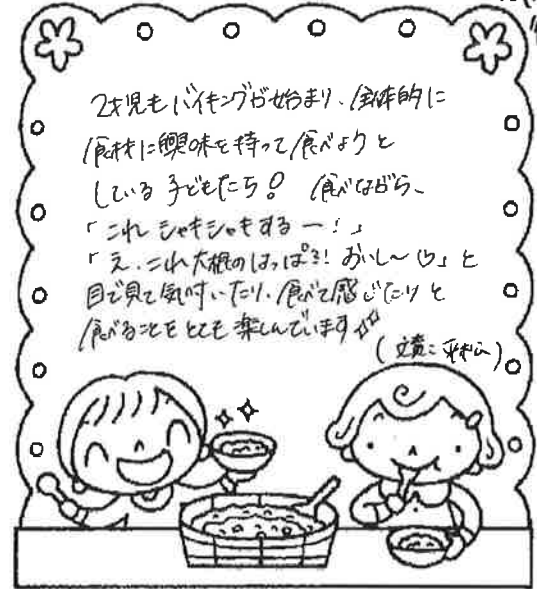 2才児もバイキングが始まり、全体的に
食材に興味を持って食べようと
している子どもたち!食べながら、
「これシャキシャキするー!」
「え、これ大根のはっぱ?!おいし〜♡」と
目で見て気付いたり、食べて感じたりと
食べることをとても楽しんでいます
(文責:平松)